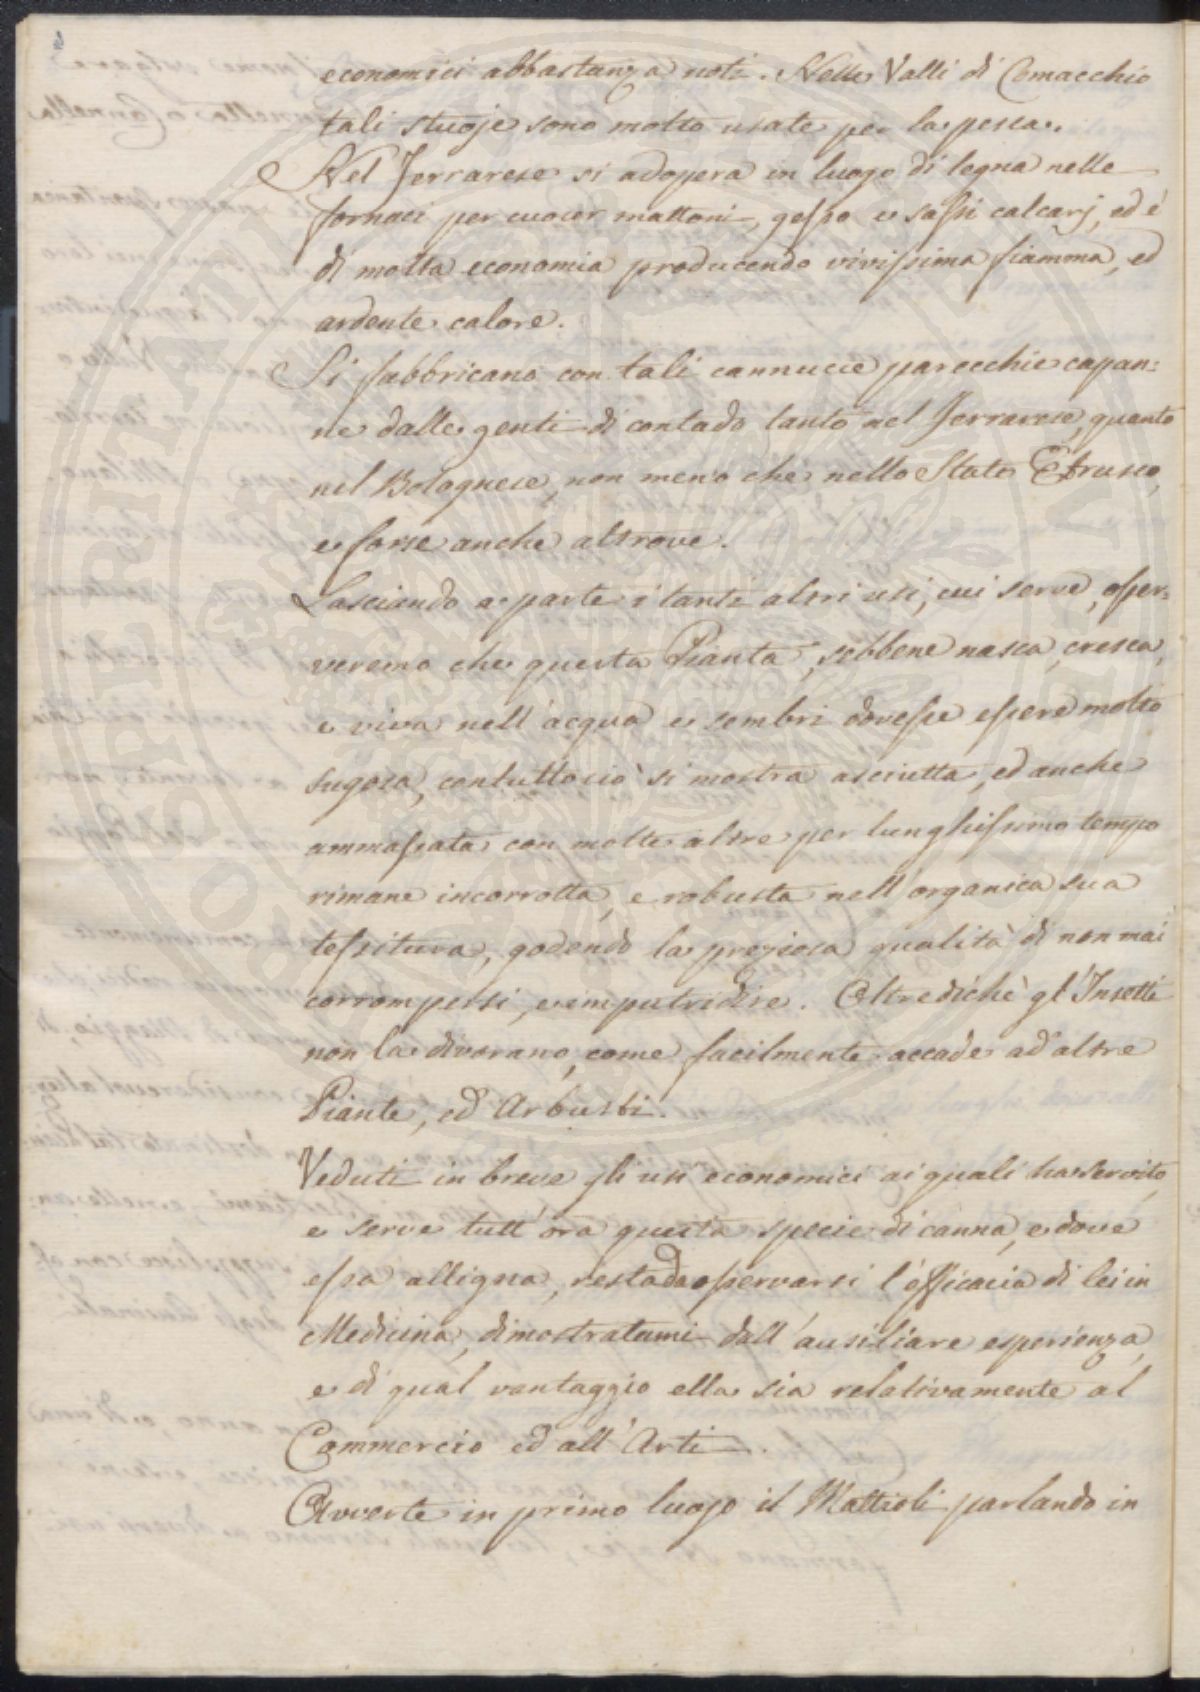 economici abbastanza noti. Nelle Valli di Comacchio
tali stuoje sono molto usate per la pesca.
Nel Ferrarese si adopera in luogo di legna nelle
fornaci per cuocer mattoni, gesso e sassi calcarj, ed è
di molta economia producendo vivissima fiamma, ed
ardente calore.
Si fabbricano con tali cannucce parecchie capan:
ne dalle genti di contado tanto nel Ferrarese, quanto
nel Bolognese, non meno che nello Stato Etrusco,
e forse anche altrove.
Lasciando a parte i tanti altri usi, cui serve, osser:
veremo che questa Pianta, sebbene nasca, cresca,
e viva nell'acqua e sembri dovesse essere molto
sugosa, contuttociò si mostra asciutta, ed anche
ammassata con molte altre per lunghissimo tempo
rimane incorrotta, e robusta nell'organica sua
tessitura, godendo la preziosa qualità di non mai
corrompersi, e imputridire. Oltrediché gl'Insetti
non la divorano, come facilmente accade ad altre
Piante, ed Arbusti.
Veduti in breve gli usi economici ai quali ha servito,
e serve tutt'ora questa specie di canna, e dove
essa alligna, resta da osservarsi l'efficacia di lei in
Medicina, dimostratami dall'ausiliare esperienza,
e di qual vantaggio ella sia relativamente al
Commercio ed all'Arti.
Avverte in primo luogo il Mattioli parlando in